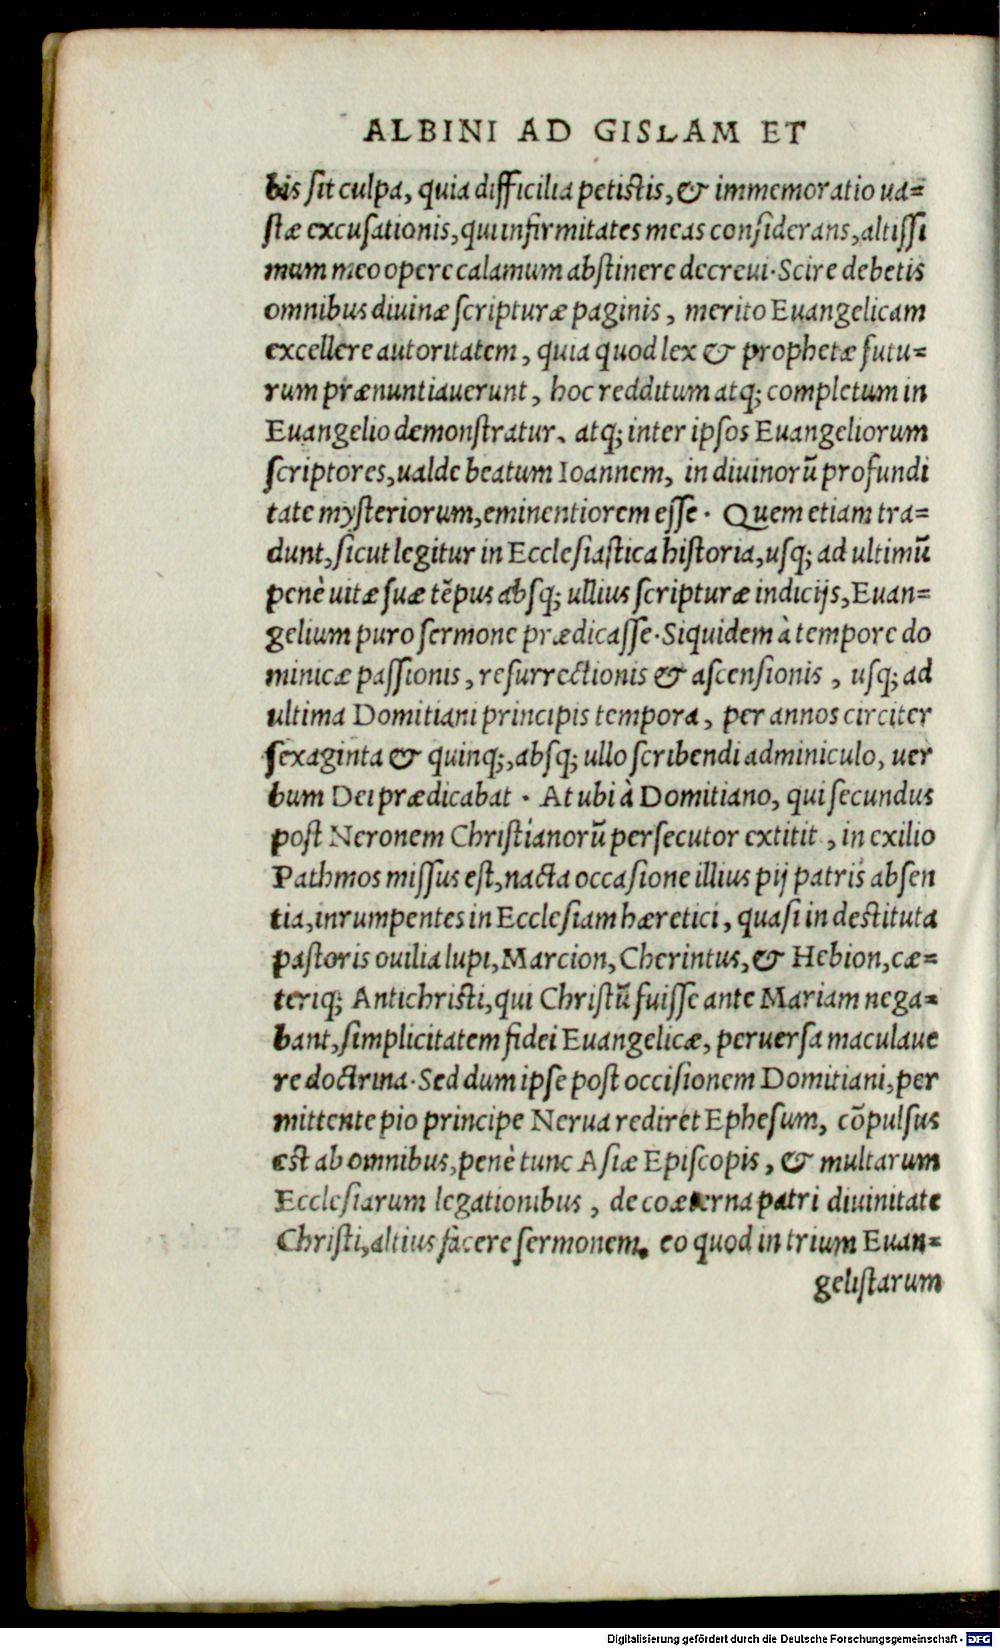 ALBINI AD GISLAM ET
bis sit culpa, quia difficilia petistis, & immemoratio ua=
stæ excusationis, qui infirmitates meas considerans, altissi
mum meo opere calamum abstinere decreui. Scire debetis
omnibus diuinæ scripturæ paginis, merito Euangelicam
excellere autoritatem, quia quod lex & prophetæ futu=
rum prænuntiauerunt, hoc redditum atq; completum in
Euangelio demonstratur. atq; inter ipsos Euangeliorum
scriptores, ualde beatum Ioannem, in diuinorū profundi
tate mysteriorum, eminentiorem esse. Quem etiam tra=
dunt, sicut legitur in Ecclesiastica historia, usq; ad ultimū
penè uitæ suæ tēpus absq; ullius scripturæ indicijs, Euan=
gelium puro sermone prædicasse. Siquidem à tempore do
minicæ passionis, resurrectionis & ascensionis, usq; ad
ultima Domitiani principis tempora, per annos circiter
sexaginta & quinq;, absq; ullo scribendi adminiculo, uer
bum Dei prædicabat. At ubi à Domitiano, qui secundus
post Neronem Christianorū persecutor extitit, in exilio
Pathmos missus est, nacta occasione illius pij patris absen
tia, inrumpentes in Ecclesiam hæretici, quasi in destituta
pastoris ouilia lupi, Marcion, Cherintus, & Hebion, cæ=
teriq; Antichristi, qui Christū fuisse ante Mariam nega=
bant, simplicitatem fidei Euangelicæ, peruersa maculaue
re doctrina. Sed dum ipse post occisionem Domitiani, per
mittente pio principe Nerua rediret Ephesum, cōpulsus
est ab omnibus, penè tunc Asiæ Episcopis, & multarum
Ecclesiarum legationibus, de coæterna patri diuinitate
Christi, altius facere sermonem. eo quod in trium Euan=
gelistarum
Digitalisierung gefördert durch die Deutsche Forschungsgemeinschaft - DFG